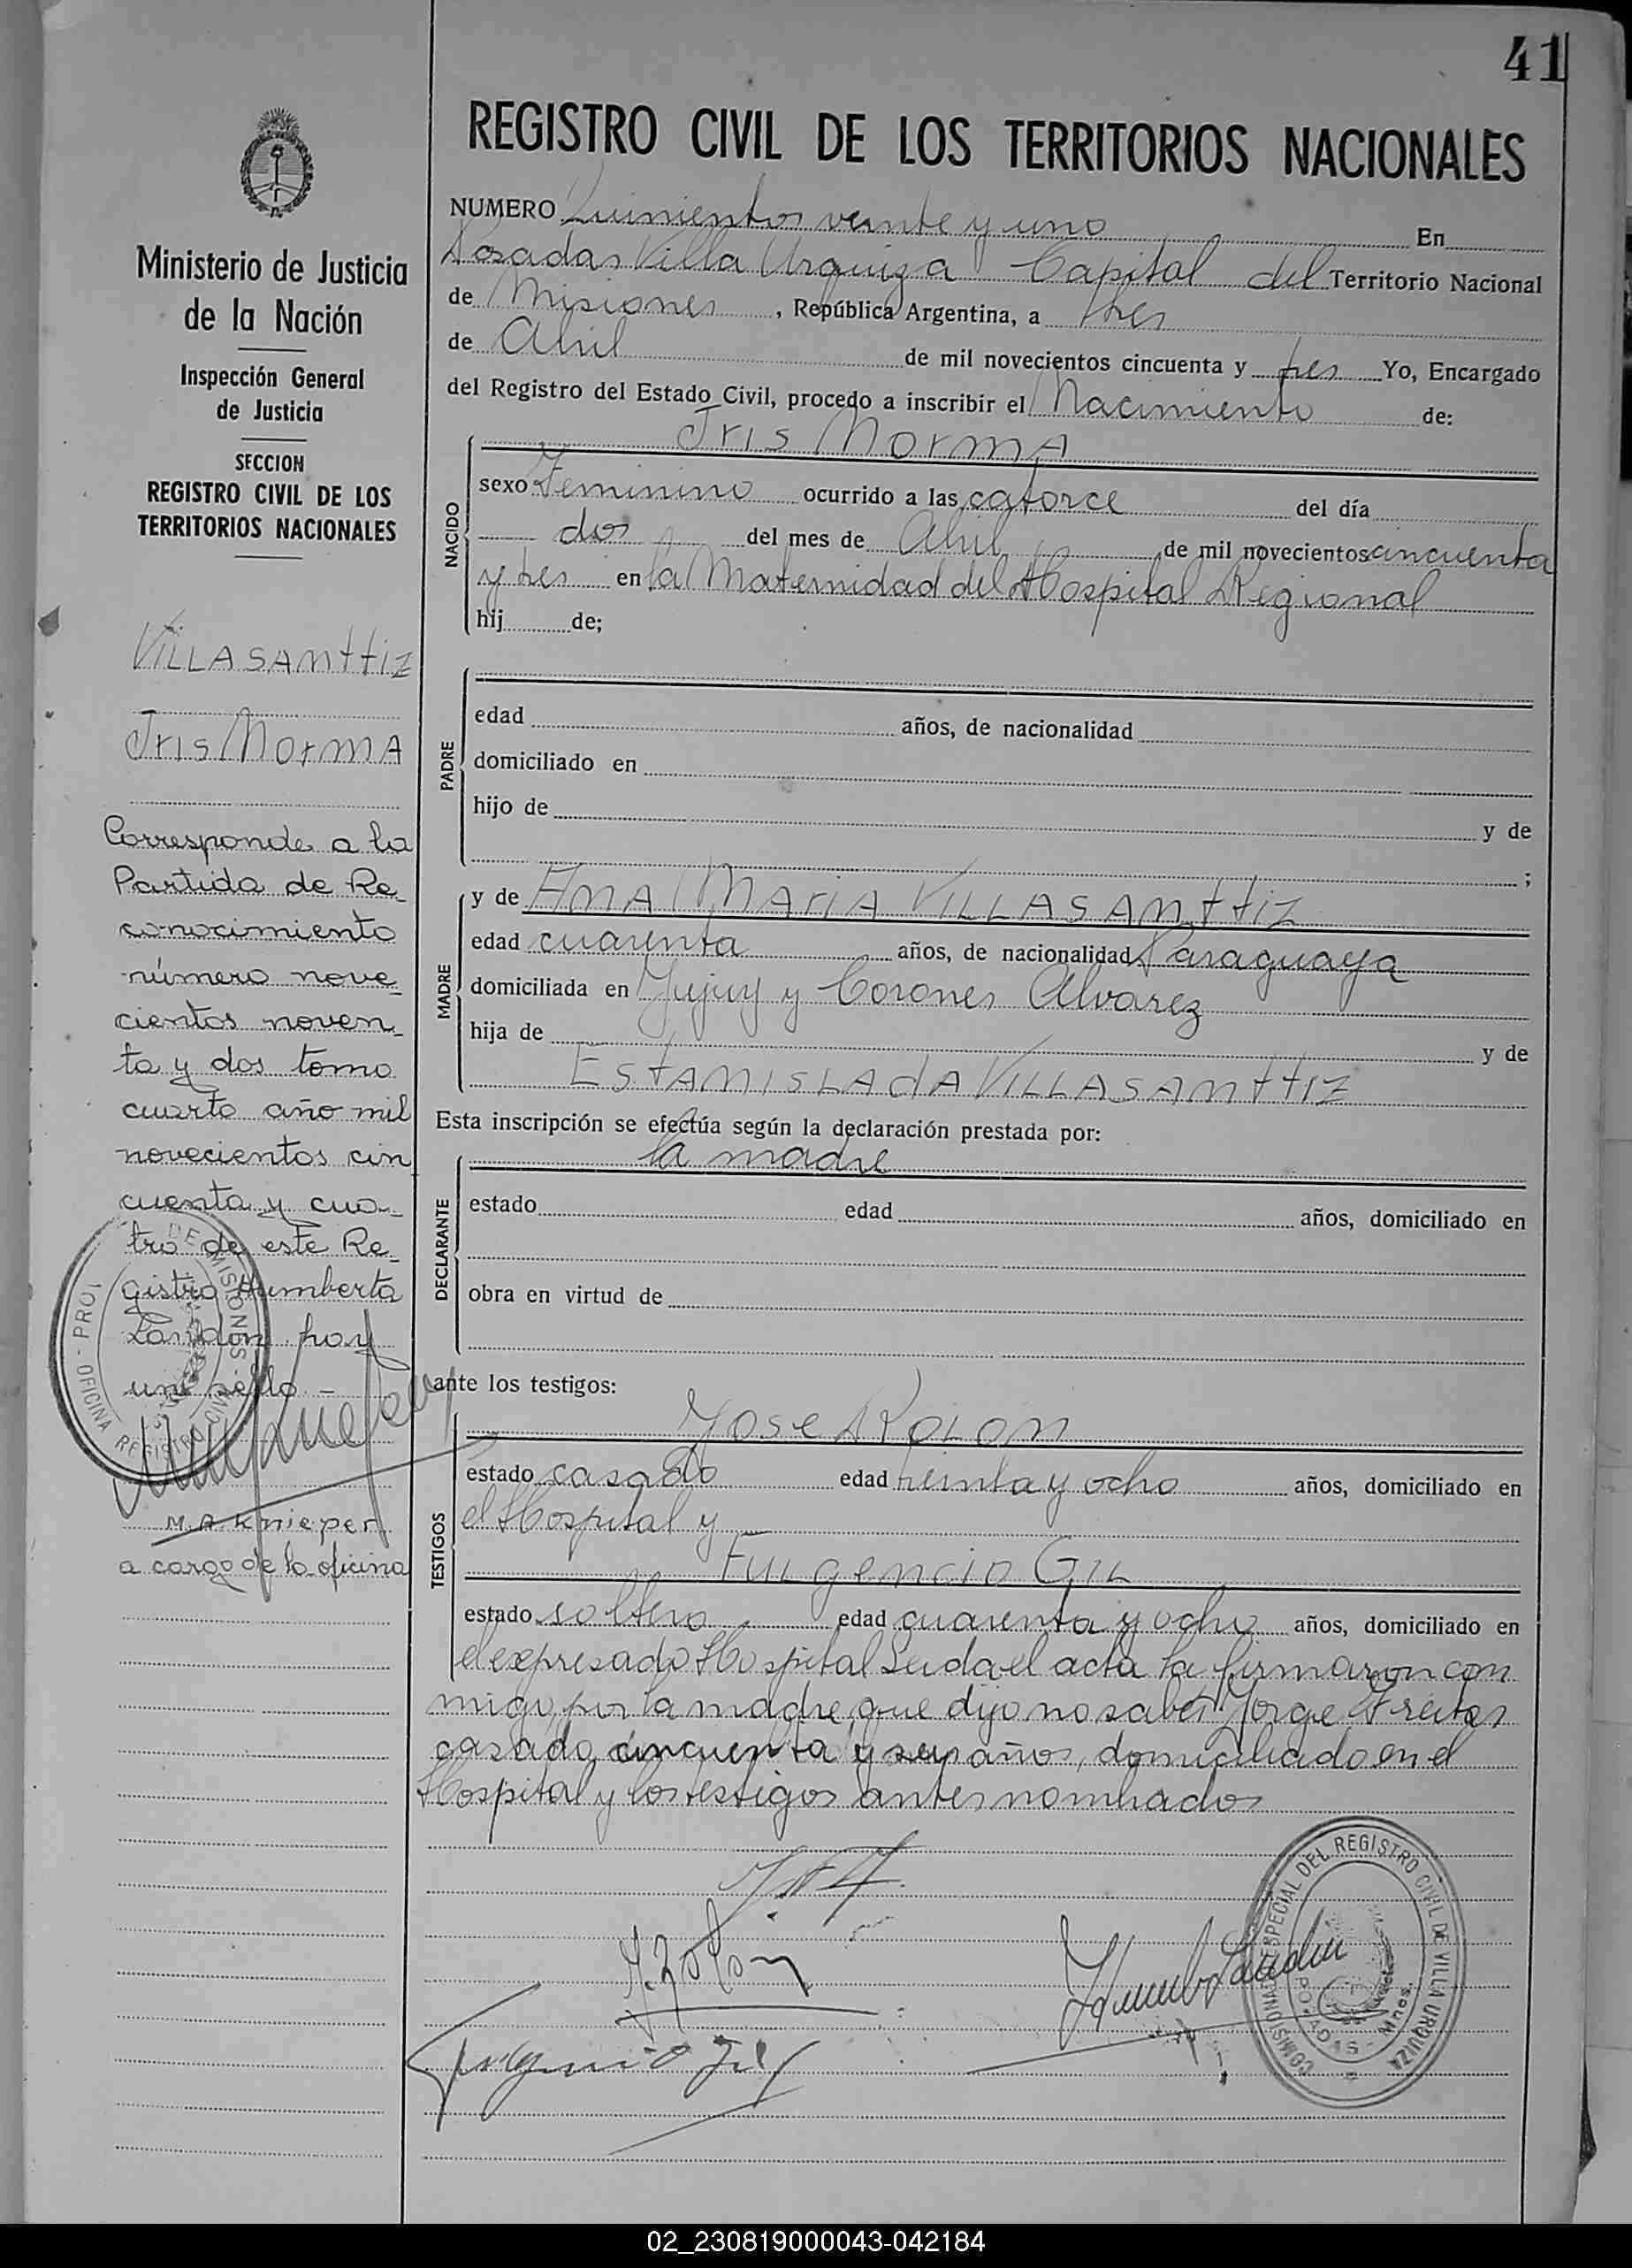 41
REGISTRO CIVIL DE LOS TERRITORIOS NACIONALES
Ministerio de Justicia
de la Nación
Inspección General
de Justicia
SECCION
REGISTRO CIVIL DE LOS
TERRITORIOS NACIONALES
VILLASANTTIZ
Iris Norma
Corresponde a la
Partida de Re
conocimiento
número nove
cientos noven
ta y dos tomo
cuarto año mil
novecientos cin
cuenta y cua-
tro de este Re
gistro Humberto
Landon hoy
un sello -
M. A. Knieper
a cargo de la oficina
OFICINA REGISTRO CIVIL DE MISIONES
NUMERO Quinientos veinte y uno En
Posadas Villa Urquiza Capital del Territorio Nacional
de Misiones, República Argentina, a tres
de Abril de mil novecientos cincuenta y tres Yo, Encargado
del Registro del Estado Civil, procedo a inscribir el Nacimiento de:
NACIDO
Iris Norma
sexo Feminino ocurrido a las catorce del día
dos del mes de Abril de mil novecientos cincuenta
y tres en la Maternidad del Hospital Regional
hij de;
PADRE
edad años, de nacionalidad
domiciliado en
hijo de y de
;
MADRE
y de Ana Maria VILLASANTTIZ
edad cuarenta años, de nacionalidad Paraguaya
domiciliada en Jujuy y Corones Alvarez
hija de y de
Estanislada VILLASANTTIZ
Esta inscripción se efectúa según la declaración prestada por:
DECLARANTE
la madre
estado edad años, domiciliado en
obra en virtud de
ante los testigos:
TESTIGOS
Jose Rolon
estado casado edad treinta y ocho años, domiciliado en
el Hospital y
Fulgencio Gil
estado soltero edad cuarenta y ocho años, domiciliado en
el expresado Hospital Leida el acta la firmaron con
migo, por la madre que dijo no saber Jorge Freitas
casado, cincuenta y seis años, domiciliado en el
Hospital y los testigos antes nombrados
J. Rolon
Fulgencio Gil
COMISIONADO ESPECIAL DEL REGISTRO CIVIL DE VILLA URQUIZA
POSADAS - Mnes.
02_230819000043-042184